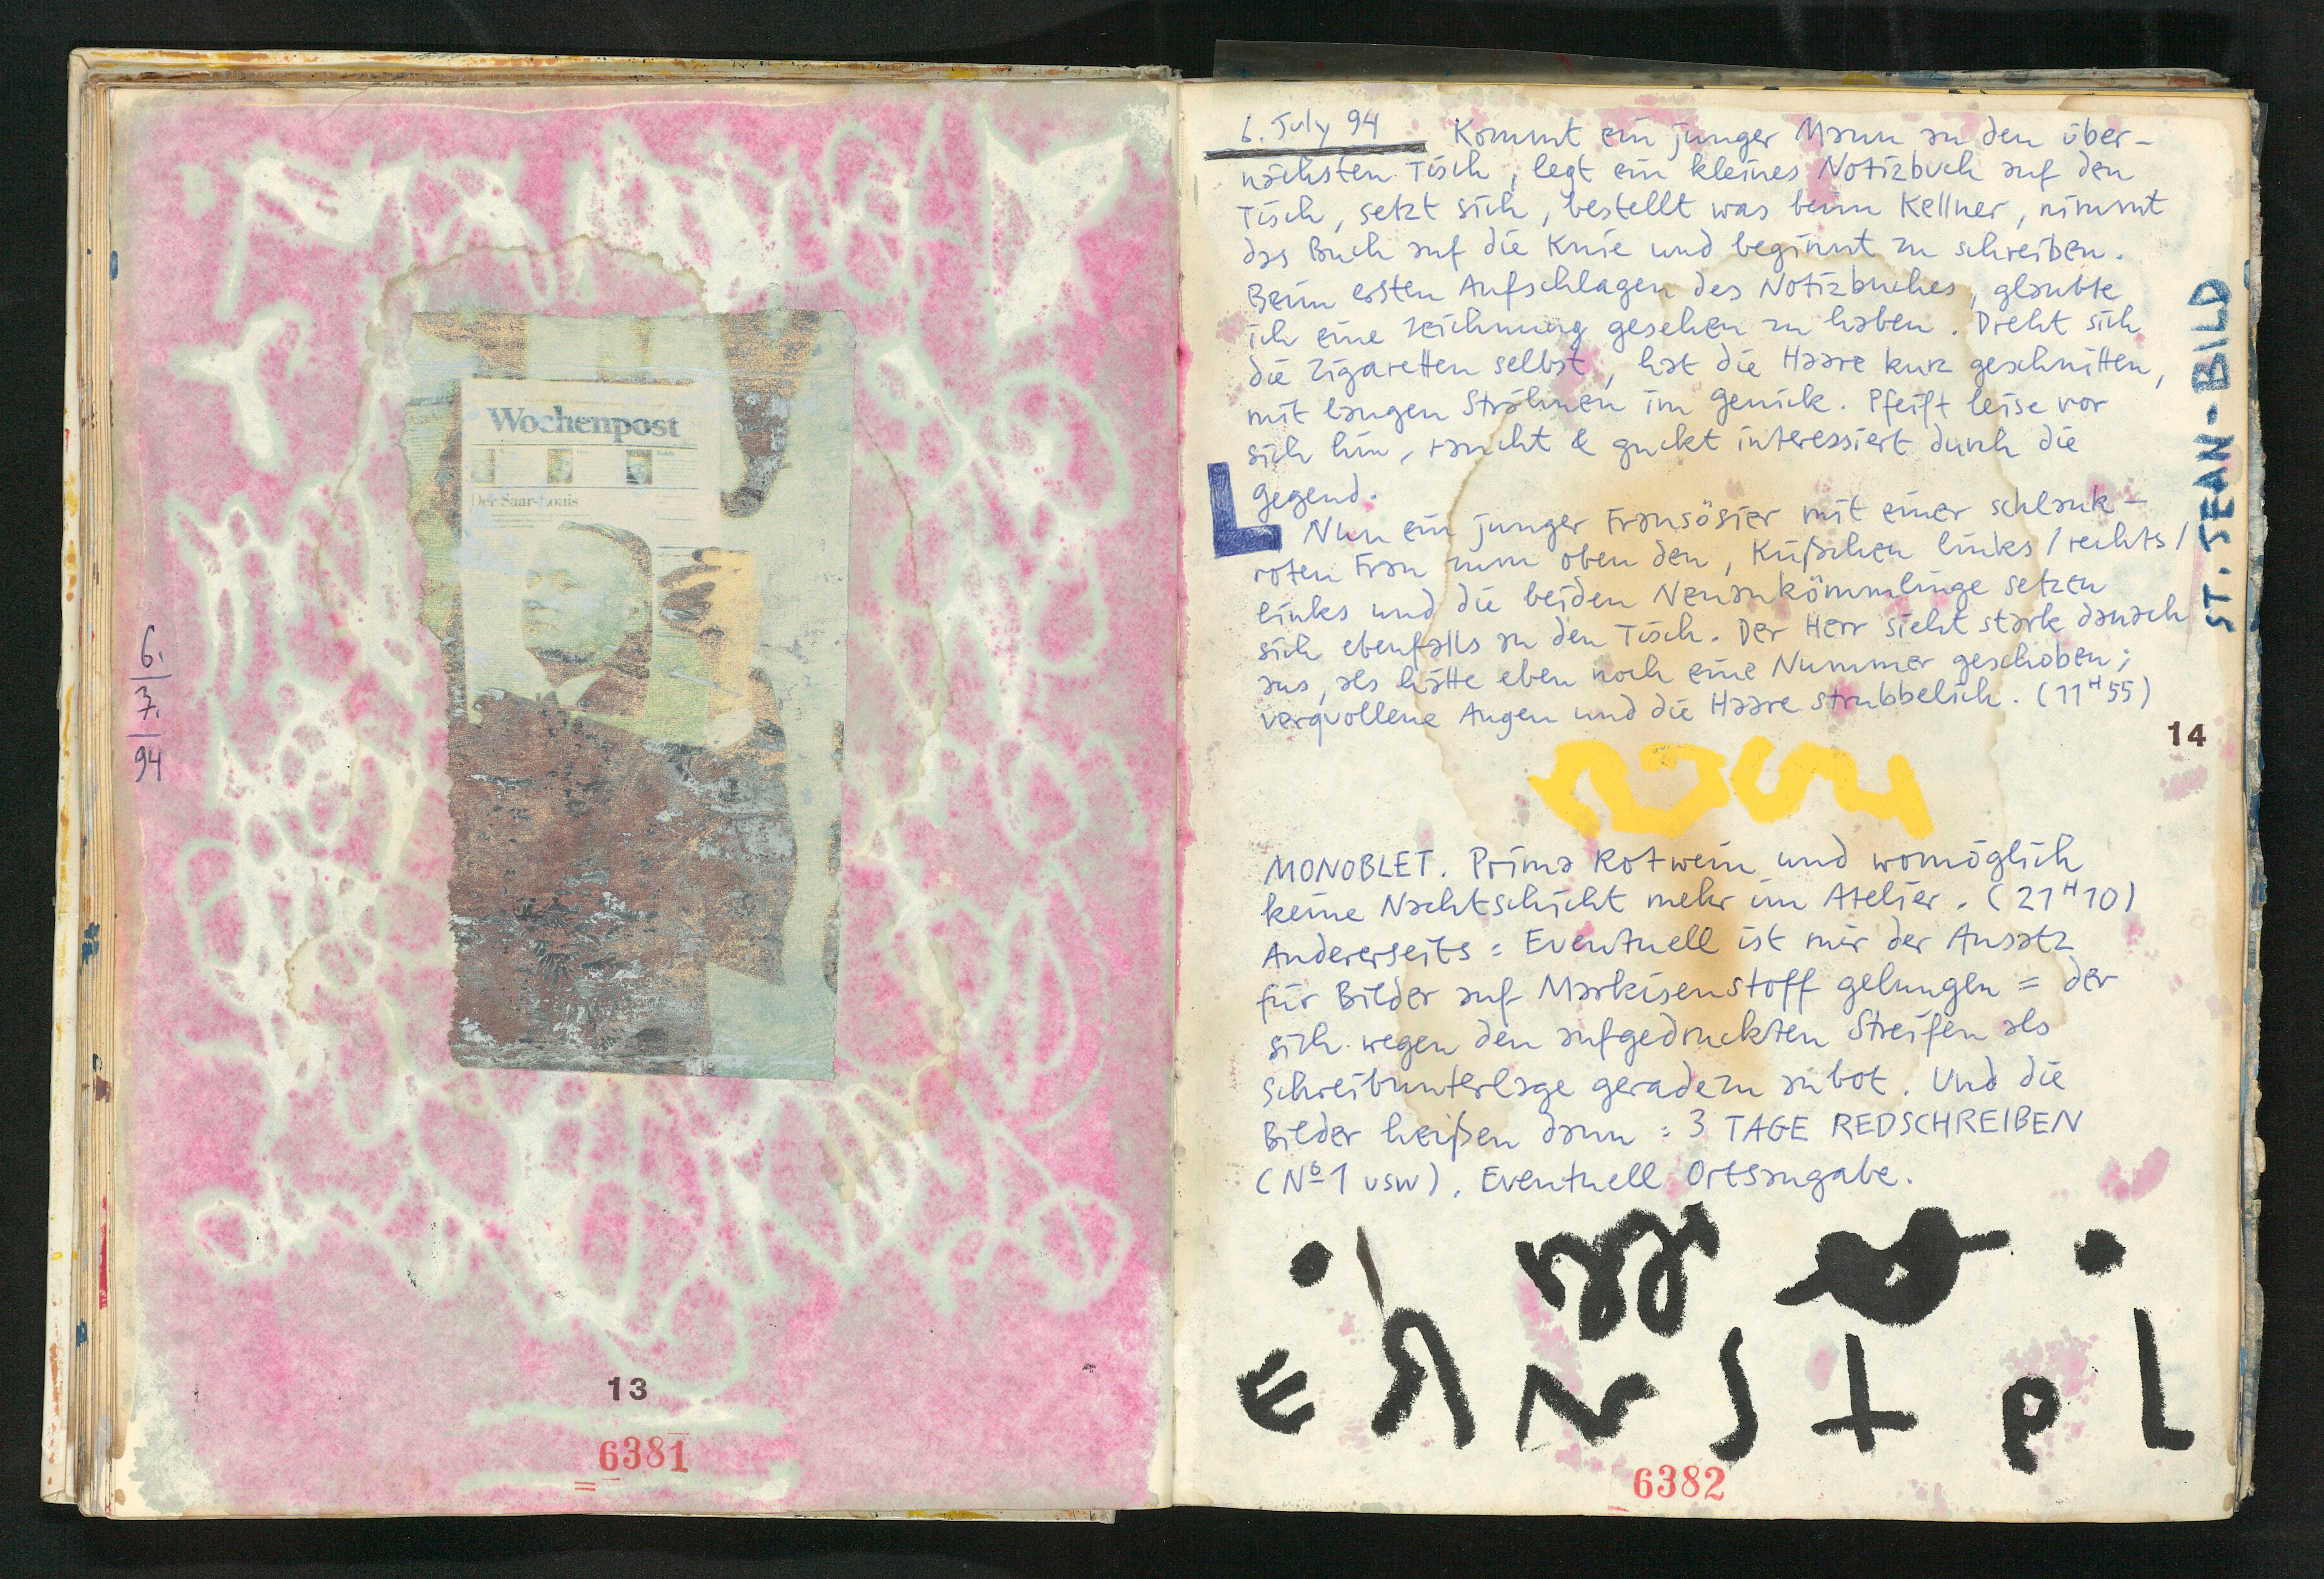 6.
7.
94
Wochenpost
Der Saar-Louis
13
6381
6. July 94 Kommt ein junger Mann an den über-
nächsten Tisch, legt ein kleines Notizbuch auf den
Tisch, setzt sich, bestellt was beim Kellner, nimmt
das Buch auf die Knie und beginnt zu schreiben.
Beim ersten Aufschlagen des Notizbuches, glaubte
ich eine Zeichnung gesehen zu haben. Dreht sich
die Zigaretten selbst, hat die Haare kurz geschnitten,
mit langen Strähnen im Genick. Pfeift leise vor
sich hin, raucht & guckt interessiert durch die
Gegend.
L Nun ein junger Fransösier mit einer schlank-
roten Frau zum oben den, Küßchen links/rechts/
links und die beiden Neuankömmlinge setzen
sich ebenfalls an den Tisch. Der Herr sieht stark danach
aus, als hätte eben noch eine Nummer geschoben;
verquollene Augen und die Haare strubbelich. (11H55)
ST. JEAN-BILD
14
MONOBLET. Prima Rotwein und womöglich
keine Nachtschicht mehr im Atelier. (21H10)
Andererseits = Eventuell ist mir der Ansatz
für Bilder auf Markisenstoff gelungen = der
sich wegen den aufgedruckten Streifen als
Schreibunterlage geradezu anbot. Und die
Bilder heißen dann = 3 TAGE REDSCHREIBEN
(No 1 usw). Eventuell Ortsangabe.
6382